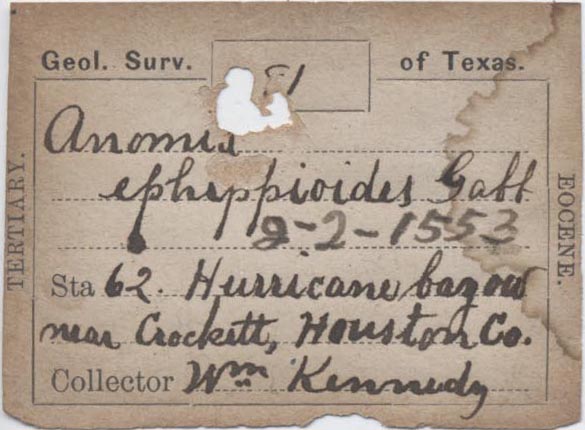 Geol. Surv. of Texas.
Anomia
ephippioides Gabb
2-2-1553
Sta 62. Hurricane bayou
near Crockett, Houston Co.
Collector Wm Kennedy
TERTIARY.
EOCENE.